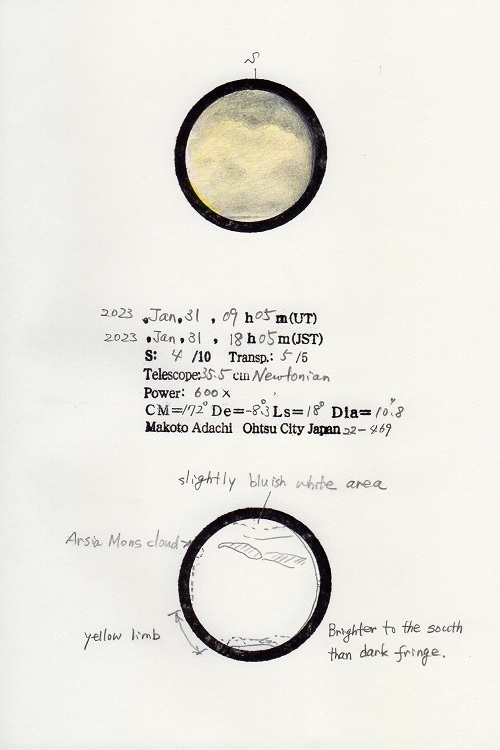 S
2023 . Jan. 31 , 09 h 05 m (UT)
2023 . Jan. 31 , 18 h 05 m (JST)
S: 4 /10 Transp.: 5 /5
Telescope: 35.5 cm Newtonian
Power: 600 x
CM=172° De=-8.3 Ls=18° Dia=10".8
Makoto Adachi Ohtsu City Japan 22-469
slightly bluish white area
Arsia Mons cloud
yellow limb
Brighter to the south
than dark fringe.